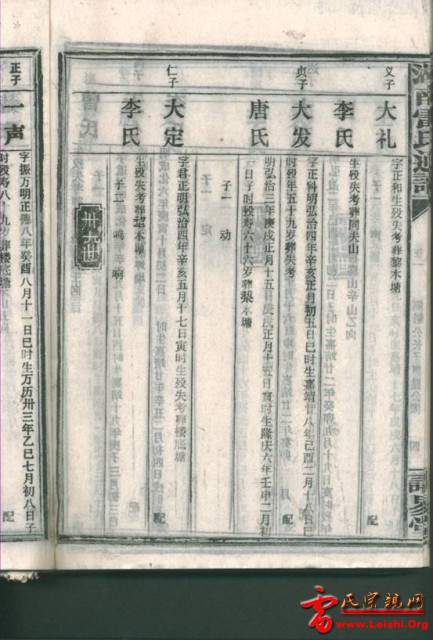 湖南雷氏通谱
义子
大礼
字正和生殁失考葬黎木塘
配
李氏
生殁失考葬同大山
贞子
大发
字正科明弘治四年辛亥正月初五日巳时生嘉靖廿八年己酉二月十八日巳
时殁年五十九岁葬失考
配
唐氏
明弘治三年庚戌正月十五日寅时生隆庆六年壬申二月初
一日子时殁寿六十六岁葬梨木塘
子一 动
仁子
大定
字君正明弘治四年辛亥五月十七日寅时生殁失考葬楼底塘
配
李氏
生殁失考葬
子二 鸣 啊
卅九世
正子
一声
字振万明正德八年癸酉八月十一日巳时生万历卅三年乙巳七月初八日子
时殁寿八十九岁葬楼底塘
配
雷氏宗亲网
www.Leishi.Org